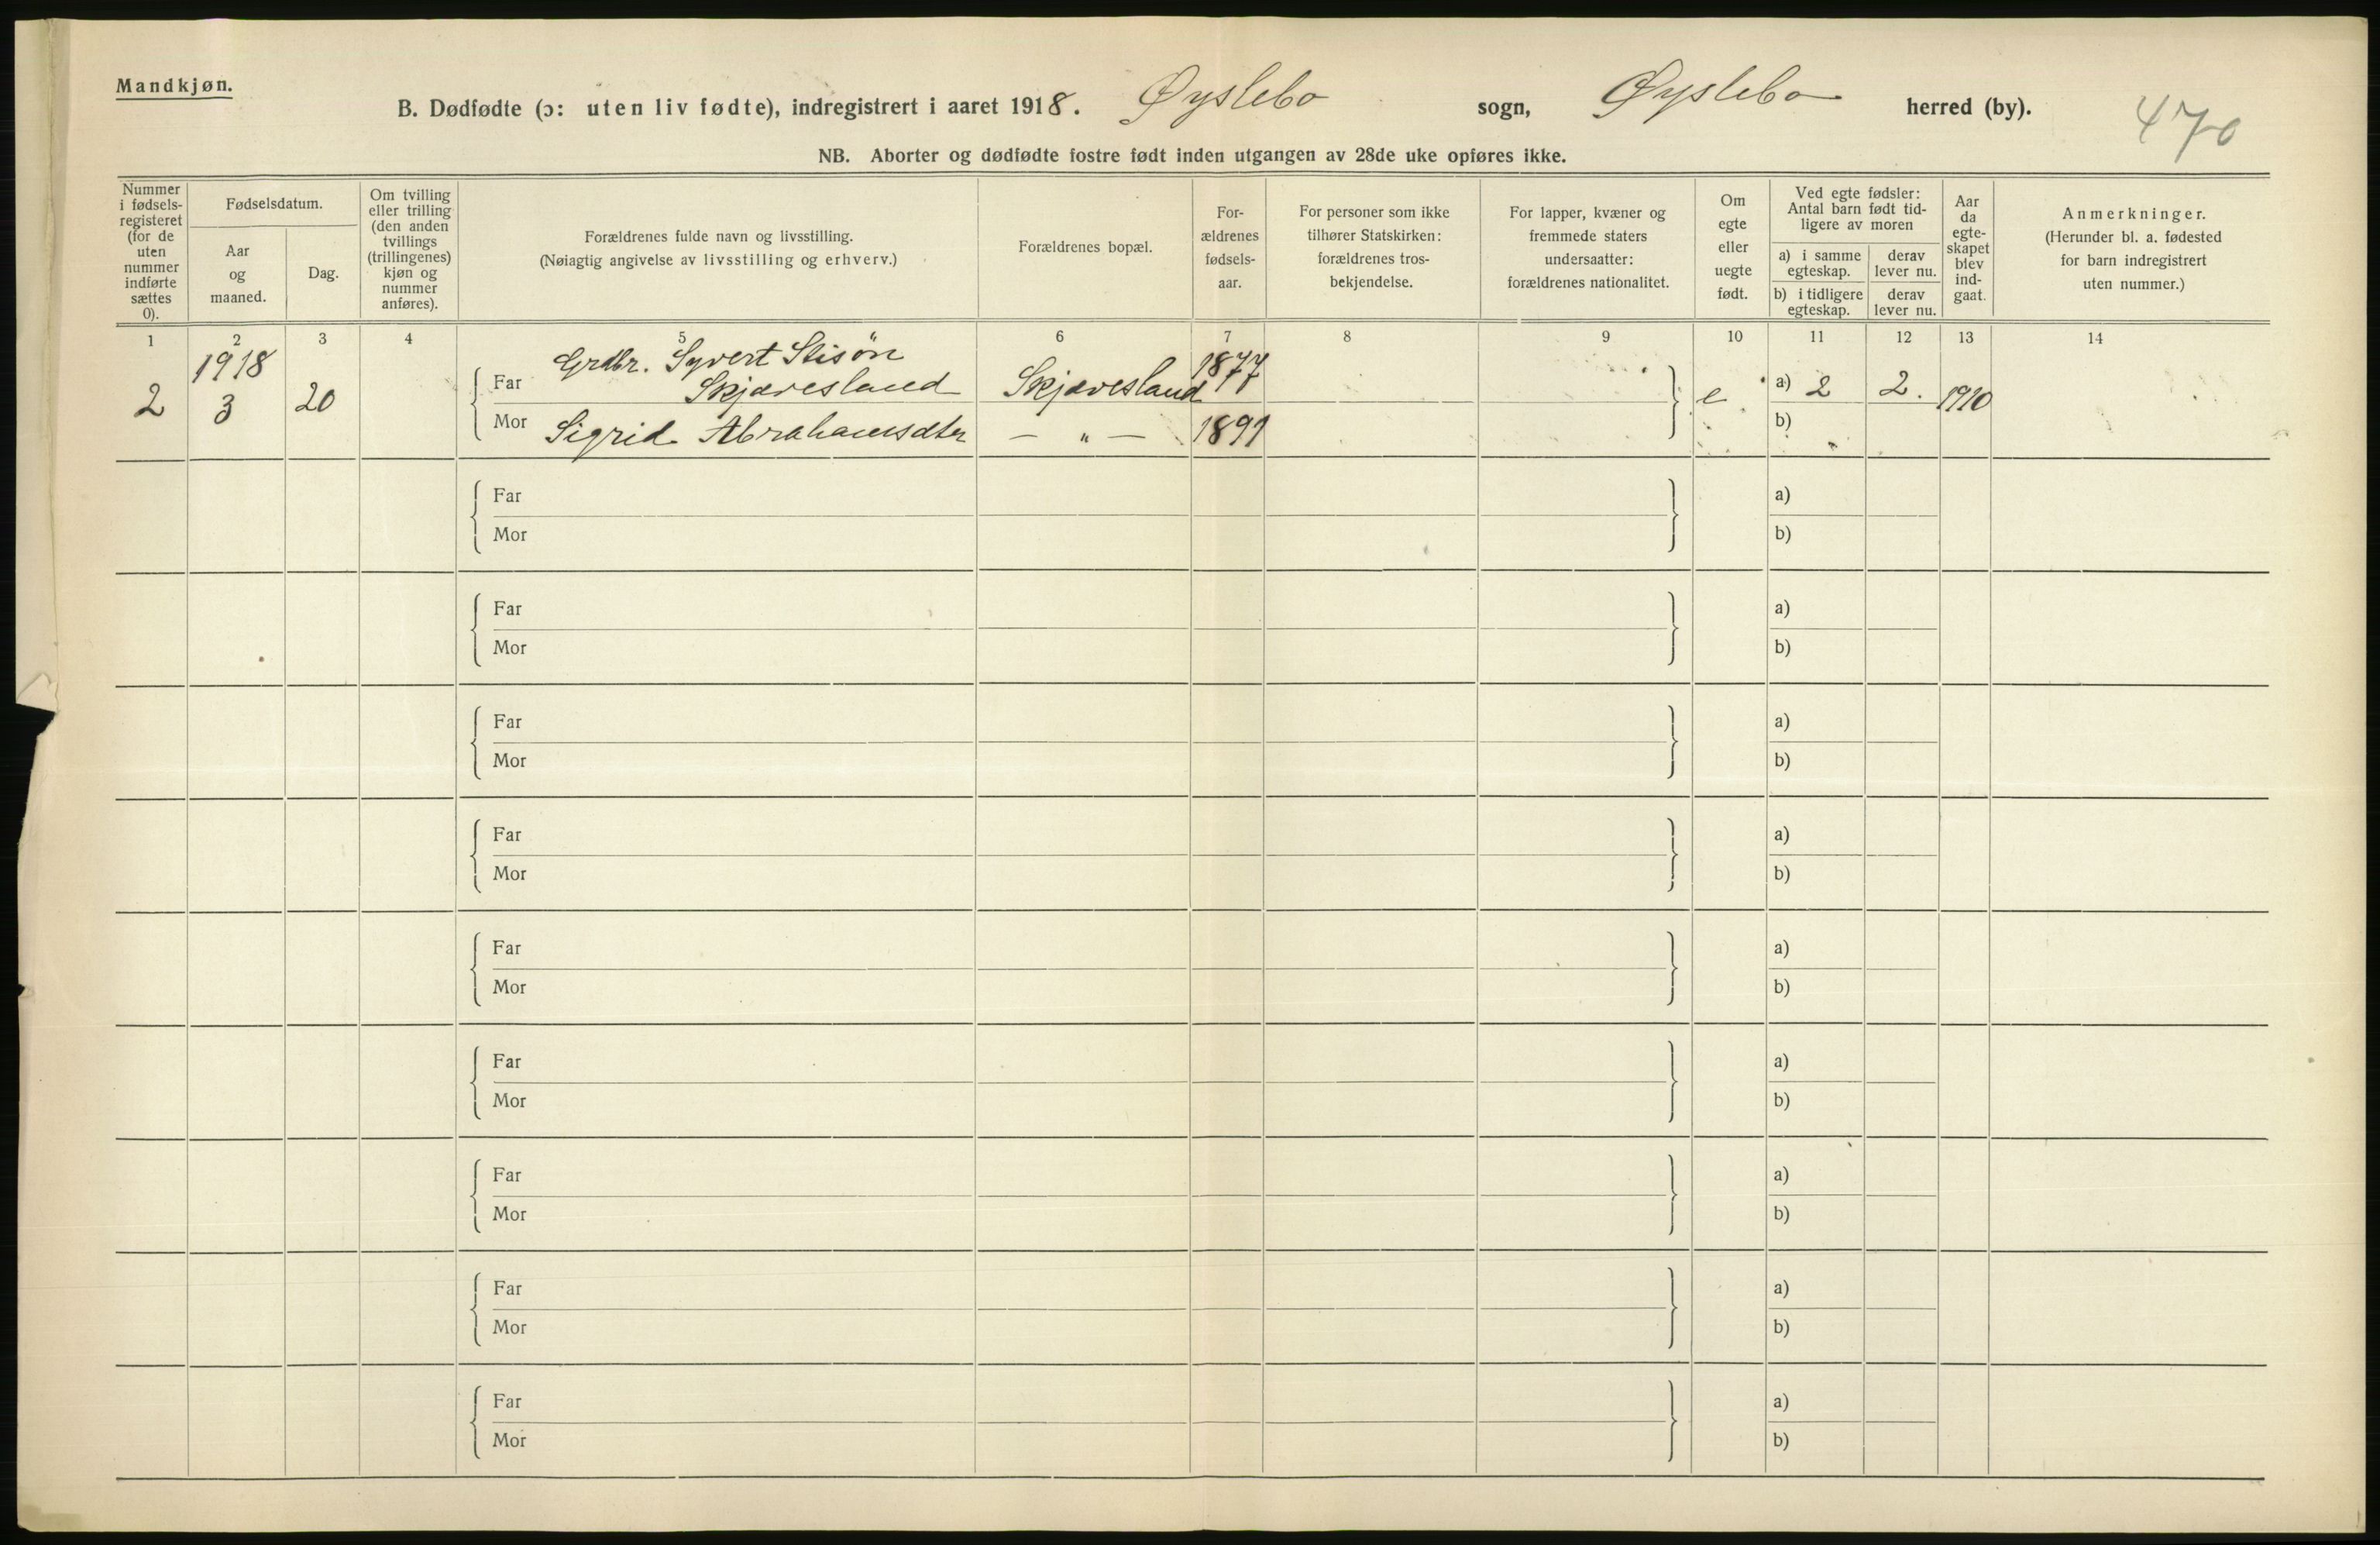 Mandkjøn.
B. Dødfødte (ɔ: uten liv fødte), indregistrert i aaret 1918. Øyslebo sogn, Øyslebo herred (by).
470
NB. Aborter og dødfødte fostre født inden utgangen av 28de uke opføres ikke.
Nummer
i fødsels-
registeret
(for de
uten
nummer
indførte
sættes
0).
Fødselsdatum.
Aar
og
maaned.
Dag.
Om tvilling
eller trilling
(den anden
tvillings
(trillingenes)
kjøn og
nummer
anføres).
Forældrenes fulde navn og livsstilling.
(Nøiagtig angivelse av livsstilling og erhverv.)
Forældrenes bopæl.
For-
ældrenes
fødsels-
aar.
For personer som ikke
tilhører Statskirken:
forældrenes tros-
bekjendelse.
For lapper, kvæner og
fremmede staters
undersaatter:
forældrenes nationalitet.
Om
egte
eller
uegte
født.
Ved egte fødsler:
Antal barn født tid-
ligere av moren
a) i samme
egteskap.
derav
lever nu.
b) i tidligere
egteskap.
derav
lever nu.
Aar
da
egte-
skapet
blev
ind-
gaat.
Anmerkninger.
(Herunder bl. a. fødested
for barn indregistrert
uten nummer.)
1 2 3 4 5 6 7 8 9 10 11 12 13 14
1918 Grdbr. Syvert Stisøn 1877
2 3 20 Far Skjævesland Skjævesland e a) 2 2. 1910
Mor Sigrid Abrahamsdtr — " — 1891 b)
Far a)
Mor b)
Far a)
Mor b)
Far a)
Mor b)
Far a)
Mor b)
Far a)
Mor b)
Far a)
Mor b)
Far a)
Mor b)
Far a)
Mor b)
Far a)
Mor b)